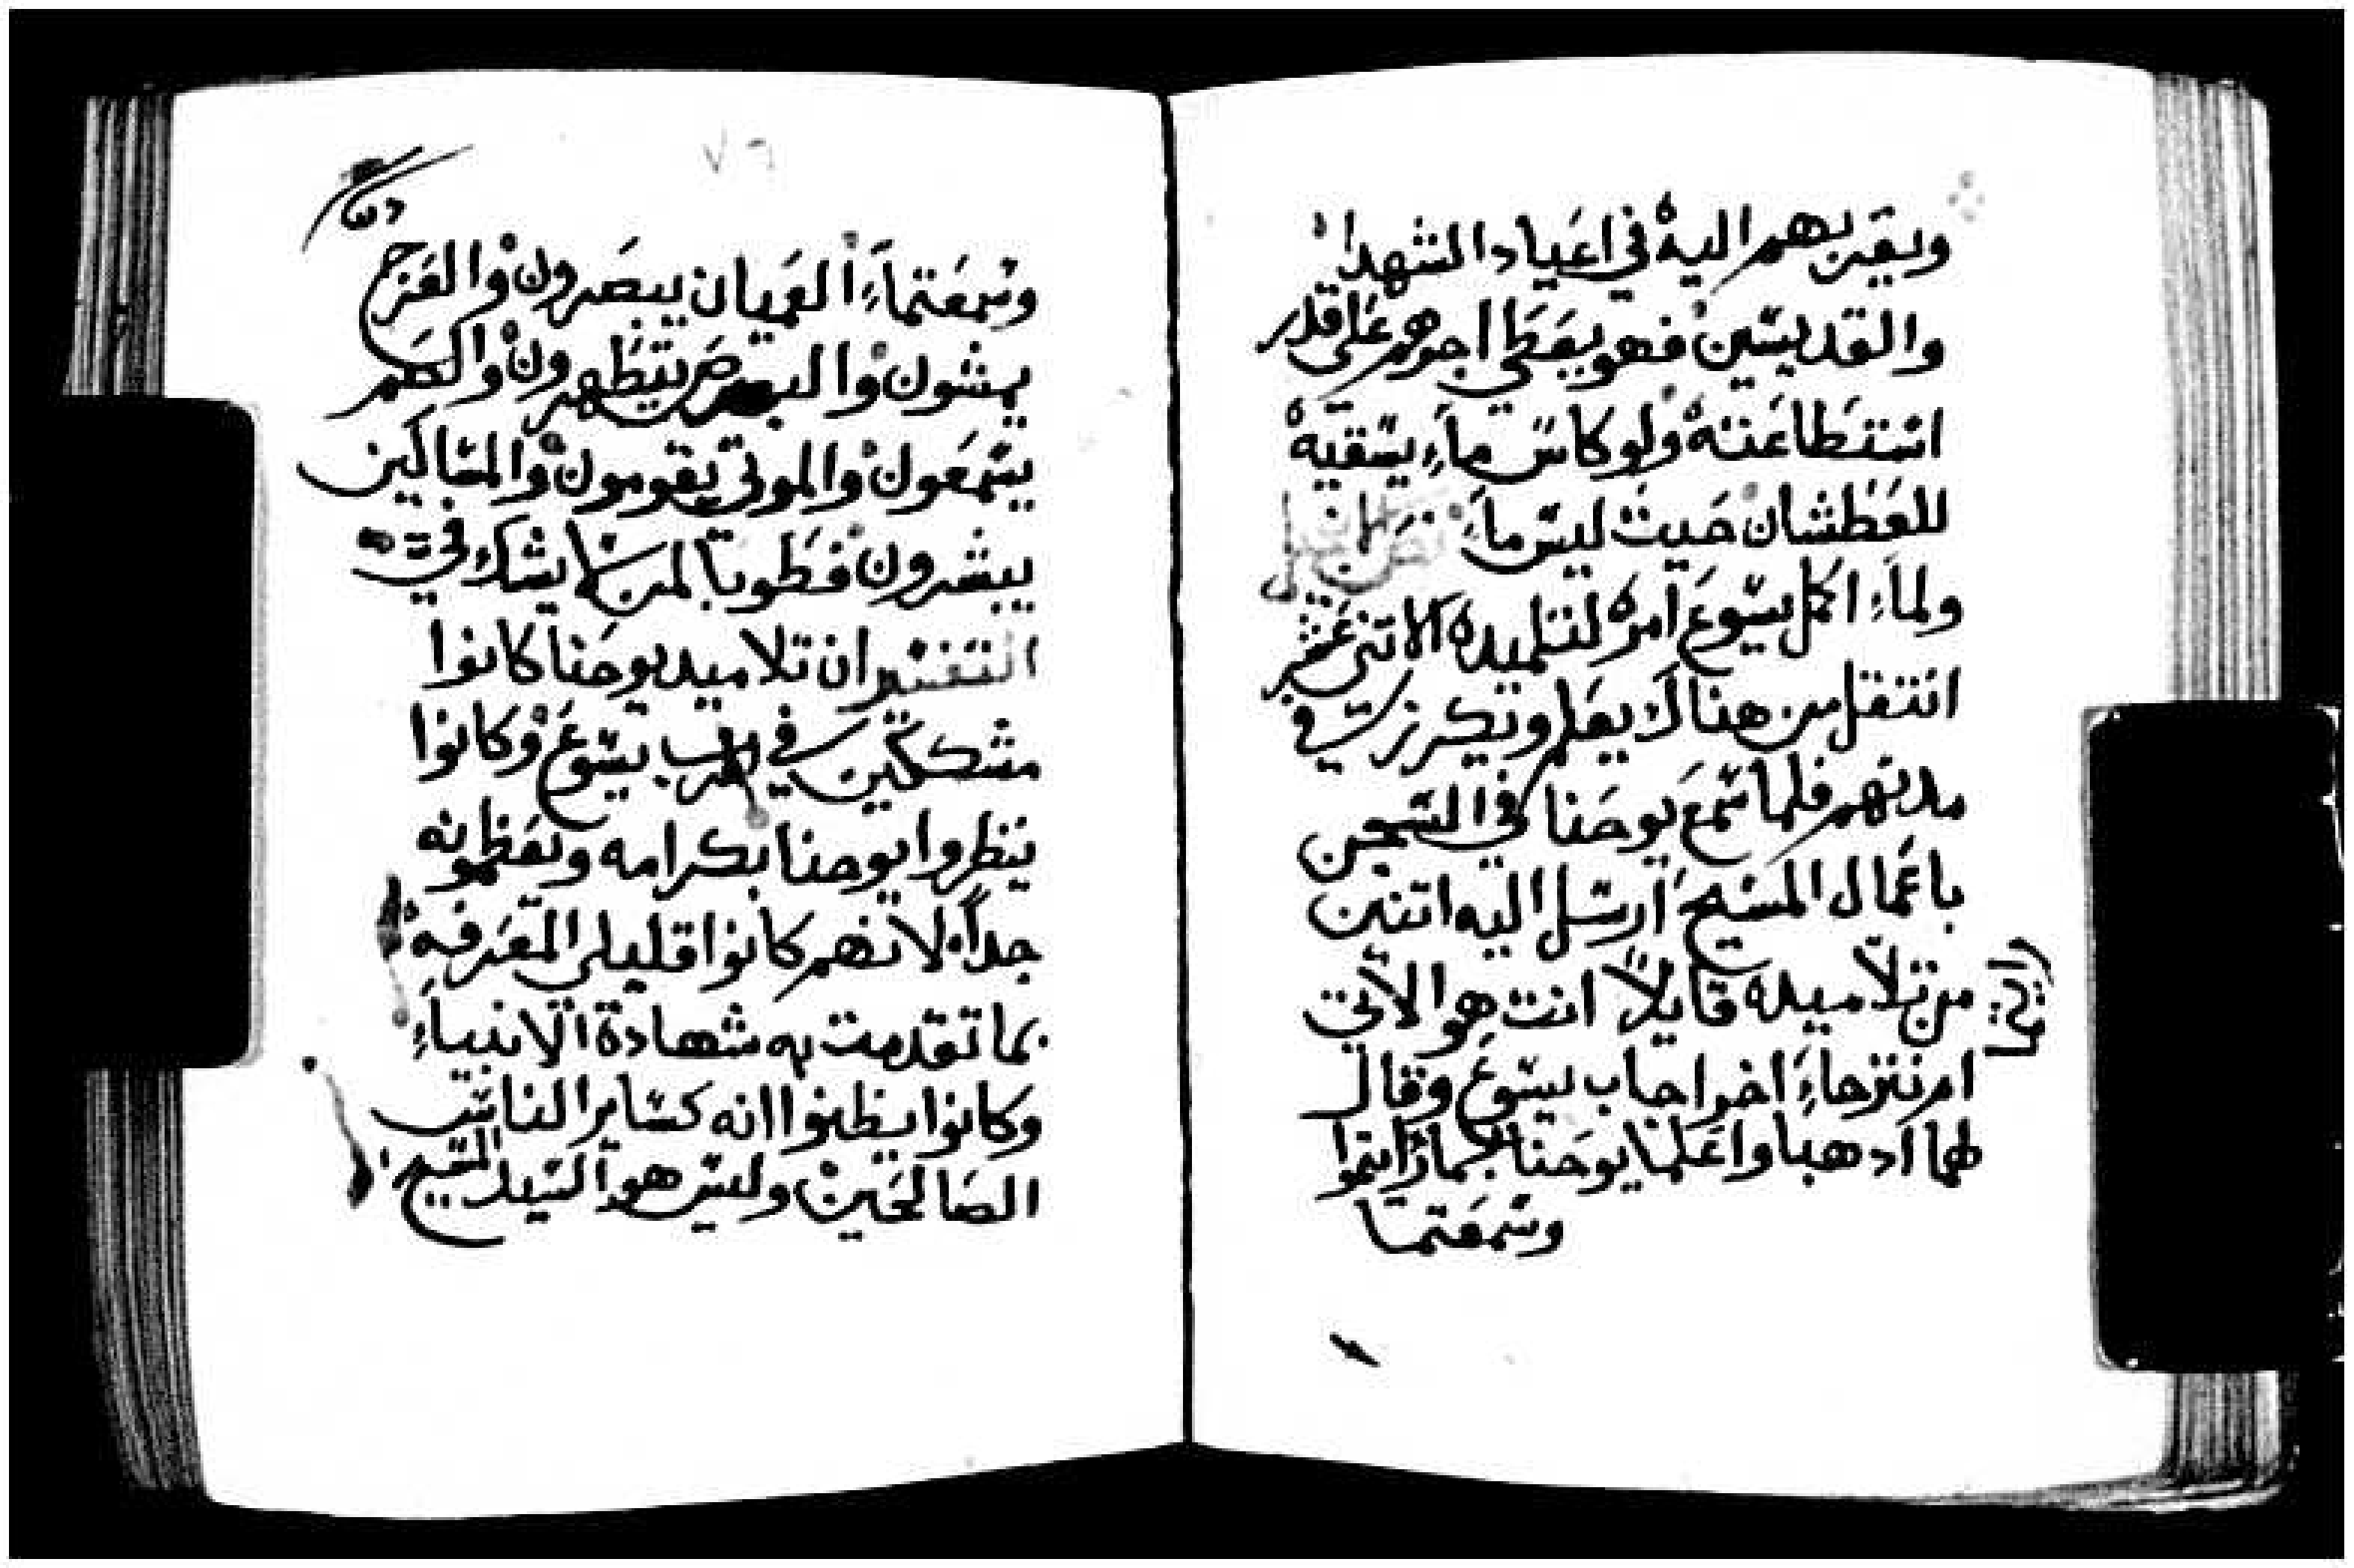 ويقربهم اليه في اعياد الشهدا
والقديسين فهو يعطي اجرهم علي قدر
استطاعته ولو كاس ماء يسقيه
للعطشان حيت ليس ماء نص الانجيل
ولماء اكمل يسوع امره لتلميده الاتني عشر
انتقل من هناك يعلم ويكرز في
مدنهم فلما سمع يوحنا في السجن
باعمال المسيح ارسل اليه اتنين
من تلاميده قايلا انت هو الاتي
ام نترجاء اخر اجاب يسوع وقال
لهما ادهبا واعلما يوحنا بجما رايتموا
وسمعتما
٧٦
وسمعتماء العميان يبصرون والعرج
يمشون والبرص يتطهرون والصم
يسمعون والموتي يقومون والمساكين
يبشرون فطوبا لمن لا يشك في
التفسير ان تلاميد يوحنا كانوا
مشككين في الرب يسوع وكانوا
ينظروا يوحنا بكرامه ويعظمونه
جداً لانهم كانوا قليلي المعرفه
بما تقدمت به شهادة الانبياء
وكانوا يظنوا انه كساير الناس
الصالحين وليس هو السيد المسيح